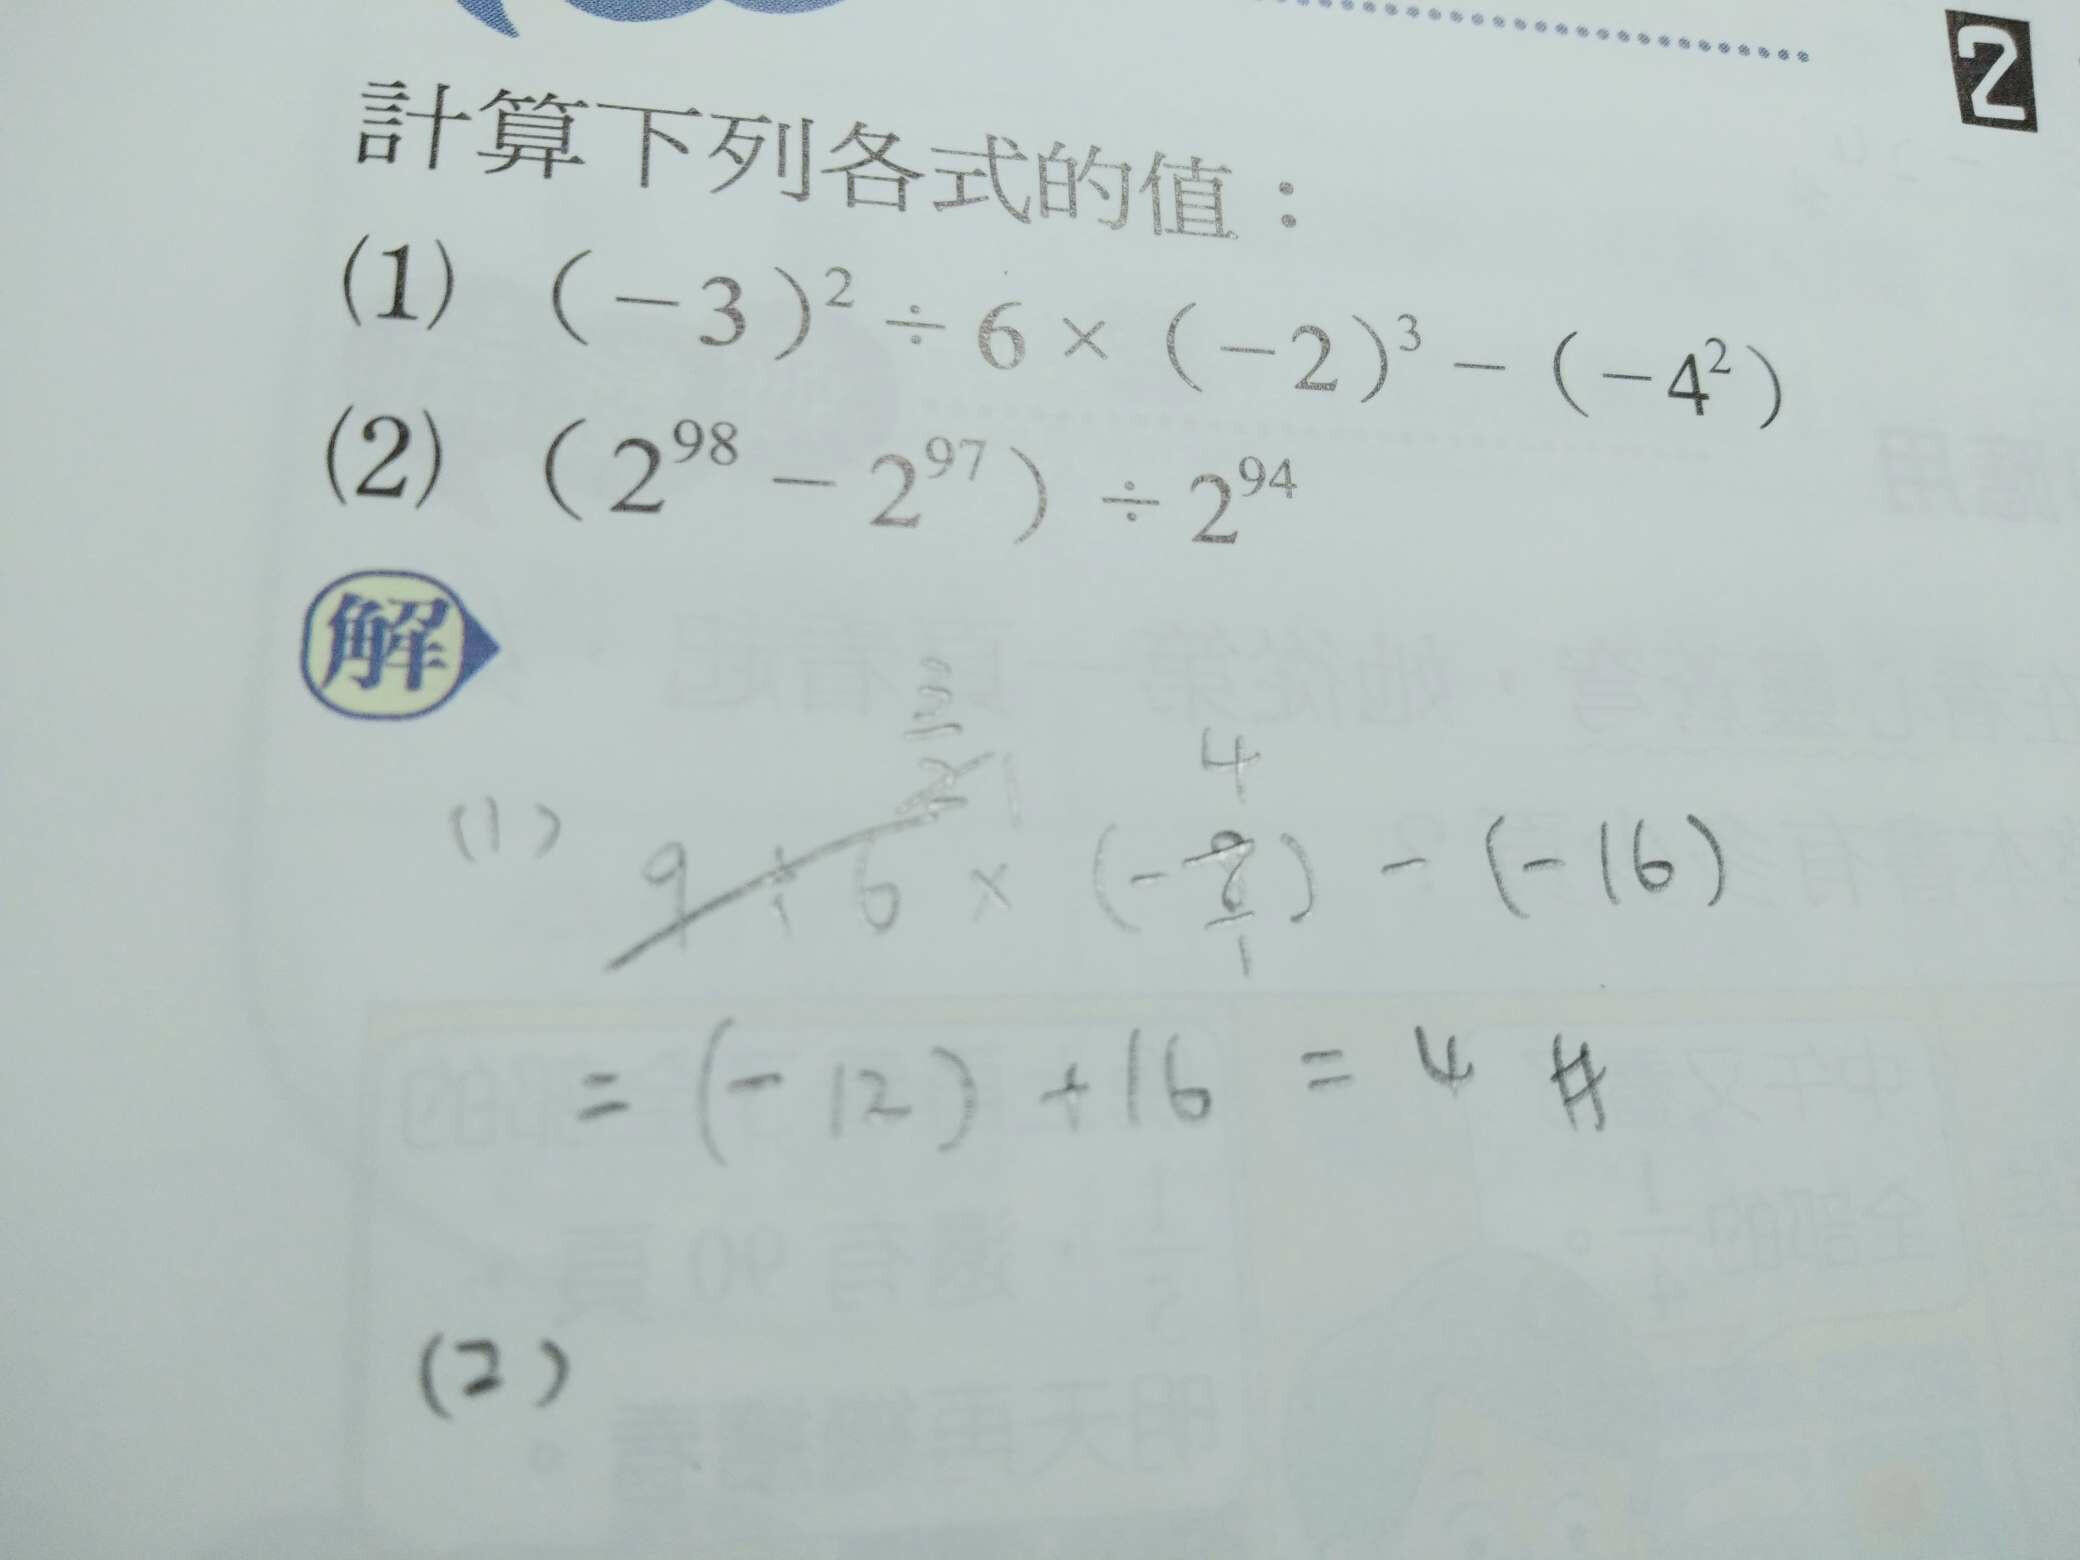 2
計算下列各式的值：
(1) (−3)² ÷ 6 × (−2)³ − (−4²)
(2) (2⁹⁸ − 2⁹⁷) ÷ 2⁹⁴
解
(1) 9 ÷ 6 3/2 1 × (−8/1) 4 − (−16)
= (−12) + 16 = 4 #
(2)